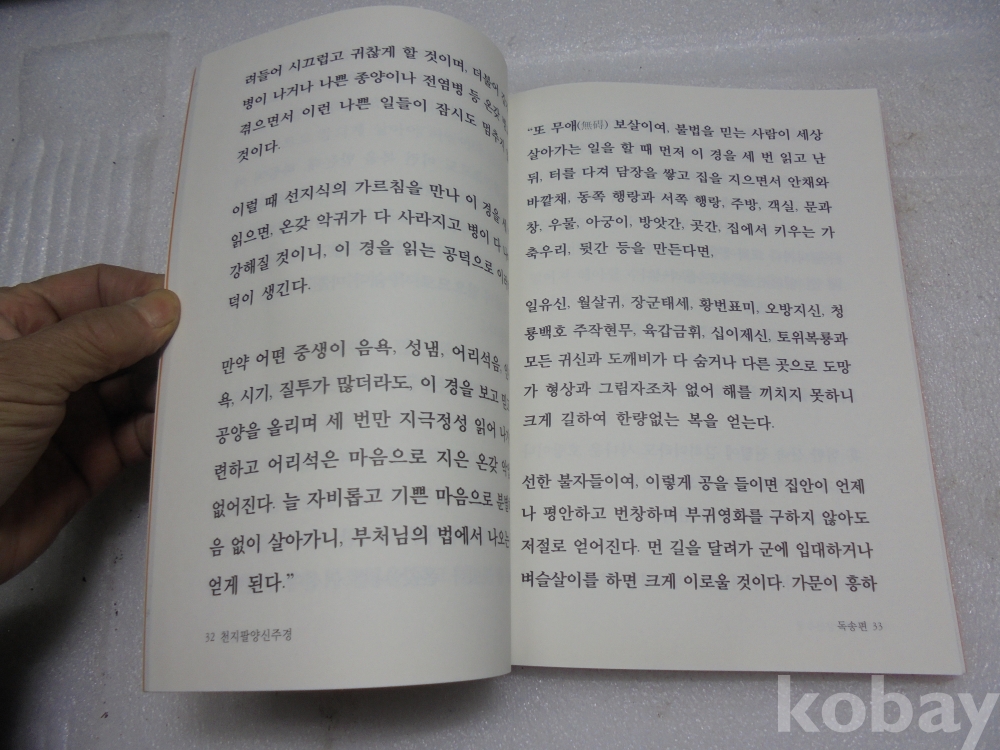 려들어 시끄럽고 귀찮게 할 것이며, 더불어
병이 나거나 나쁜 종양이나 전염병 등 온갖
겪으면서 이런 나쁜 일들이 잠시도 멈추지
것이다.
이럴 때 선지식의 가르침을 만나 이 경을
읽으면, 온갖 악귀가 다 사라지고 병이 다
강해질 것이니, 이 경을 읽는 공덕으로
덕이 생긴다.
만약 어떤 중생이 음욕, 성냄, 어리석음,
욕, 시기, 질투가 많더라도, 이 경을 보고
공양을 올리며 세 번만 지극정성 읽어
련하고 어리석은 마음으로 지은 온갖
없어진다. 늘 자비롭고 기쁜 마음으로
음 없이 살아가니, 부처님의 법에서 나오는
얻게 된다.”
32 천지팔양신주경
“또 무애(無碍) 보살이여, 불법을 믿는 사람이 세상
살아가는 일을 할 때 먼저 이 경을 세 번 읽고 난
뒤, 터를 다져 담장을 쌓고 집을 지으면서 안채와
바깥채, 동쪽 행랑과 서쪽 행랑, 주방, 객실, 문과
창, 우물, 아궁이, 방앗간, 곳간, 집에서 키우는 가
축우리, 뒷간 등을 만든다면,
일유신, 월살귀, 장군태세, 황번표미, 오방지신, 청
룡백호 주작현무, 육갑금휘, 십이제신, 토위복룡과
모든 귀신과 도깨비가 다 숨거나 다른 곳으로 도망
가 형상과 그림자조차 없어 해를 끼치지 못하니
크게 길하여 한량없는 복을 얻는다.
선한 불자들이여, 이렇게 공을 들이면 집안이 언제
나 평안하고 번창하며 부귀영화를 구하지 않아도
저절로 얻어진다. 먼 길을 달려가 군에 입대하거나
벼슬살이를 하면 크게 이로울 것이다. 가문이 흥하
독송편 33
kobay